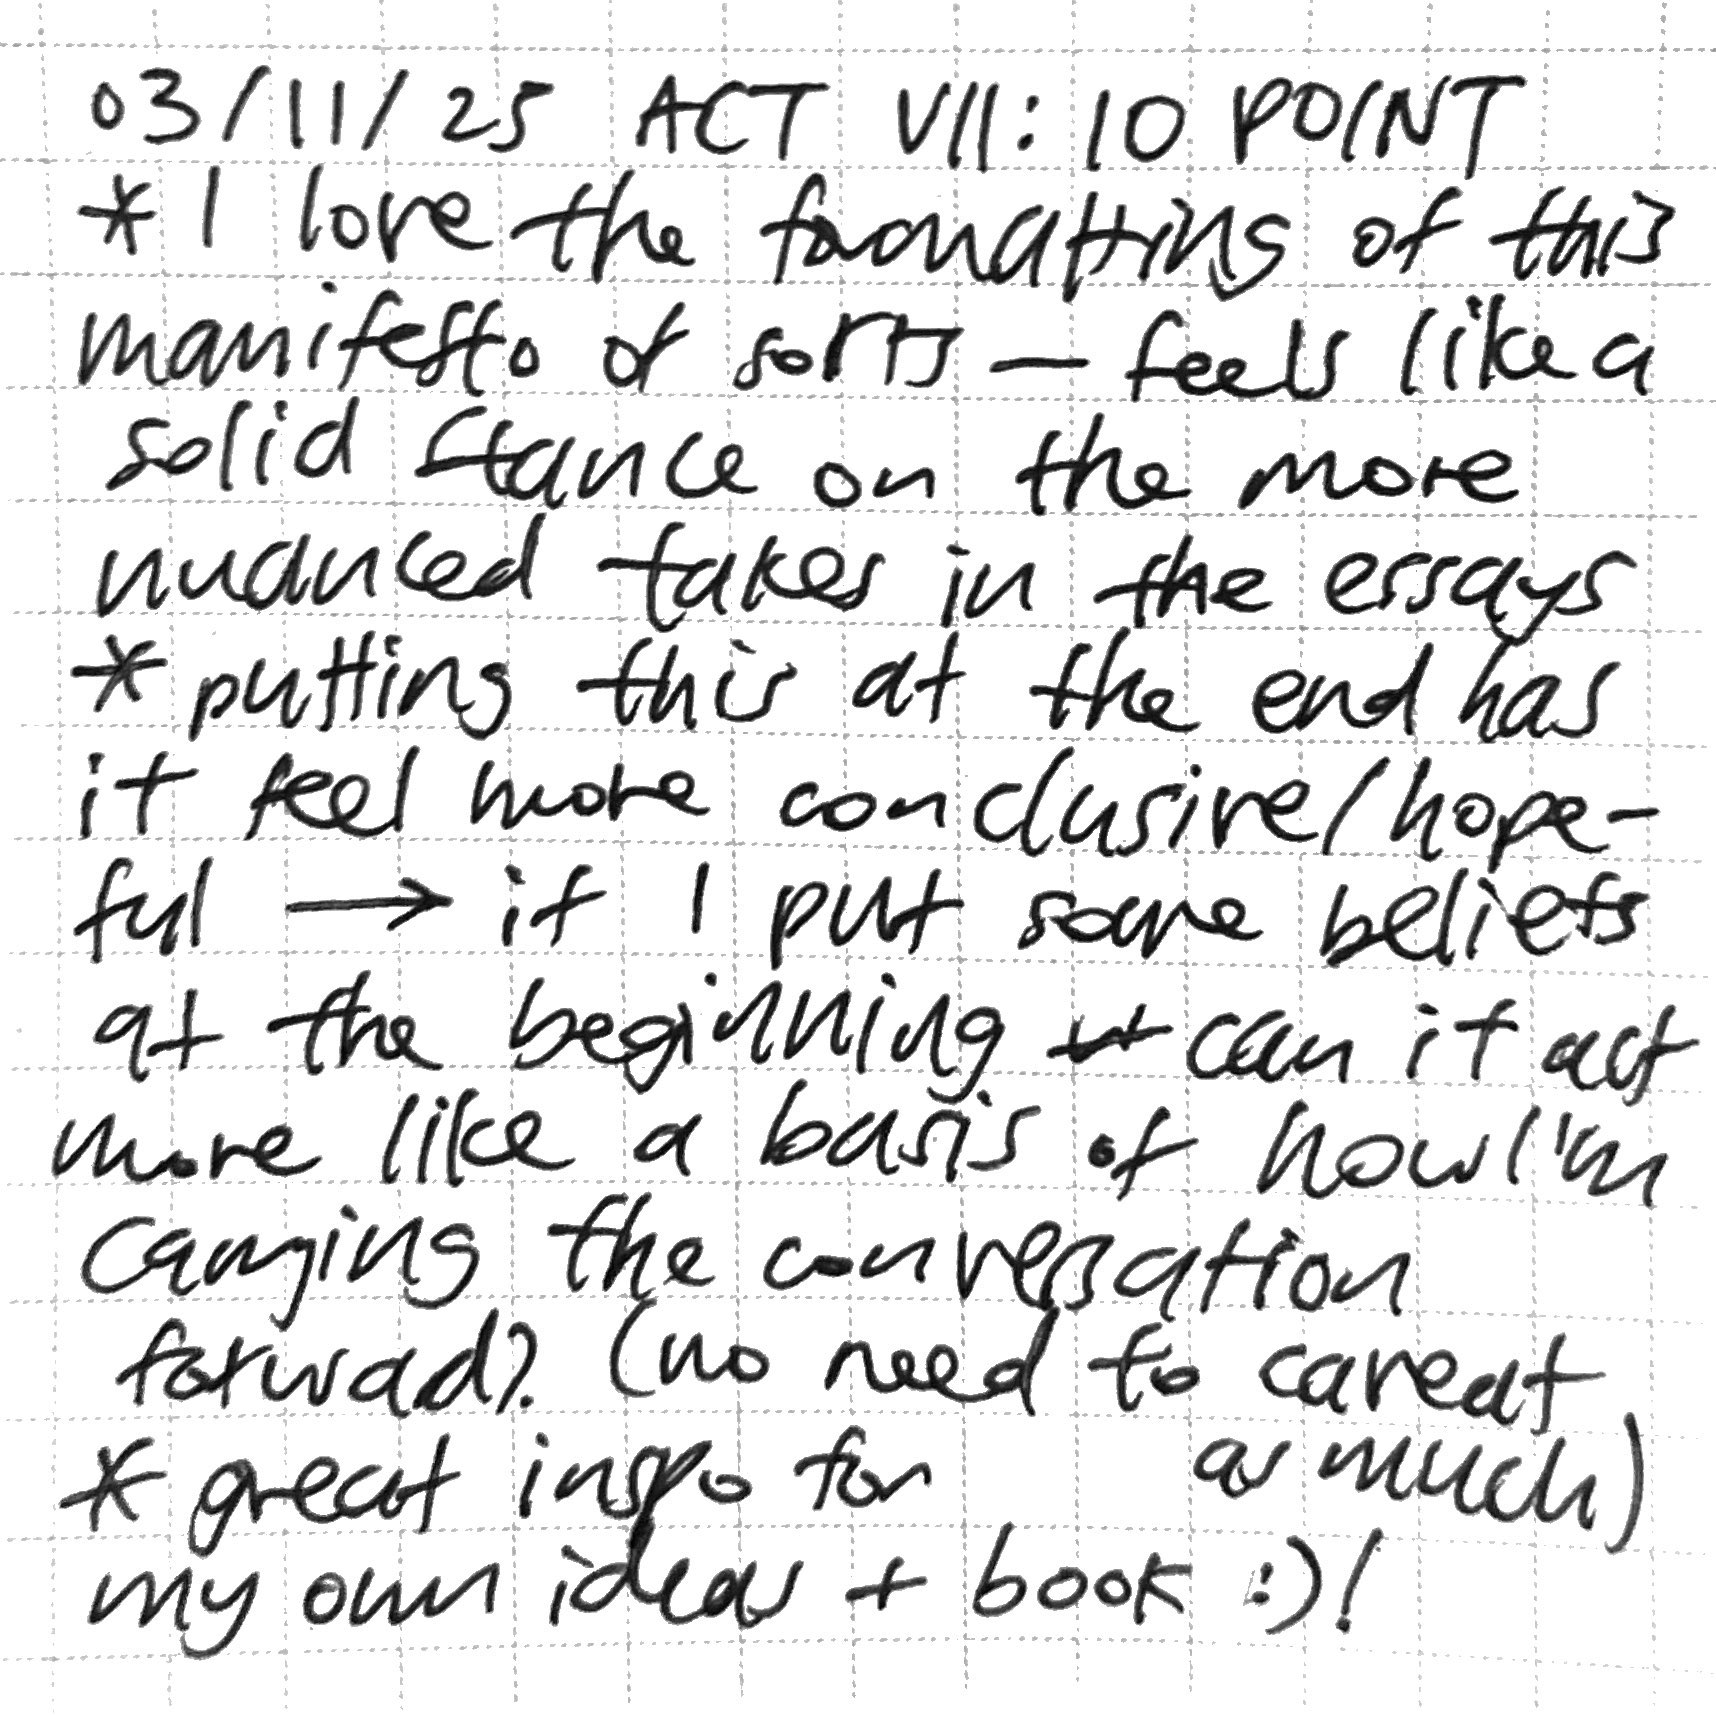 03/11/25 ACT VII: 10 POINT
* I love the formatting of this
manifesto of sorts — feels like a
solid stance on the more
nuanced takes in the essays
* putting this at the end has
it feel more conclusive/hope-
ful → if I put some beliefs
at the beginning can it act
more like a basis of how I'm
carrying the conversation
forward? (no need to caveat
as much)
* great inspo for
my own ideas + book :)!